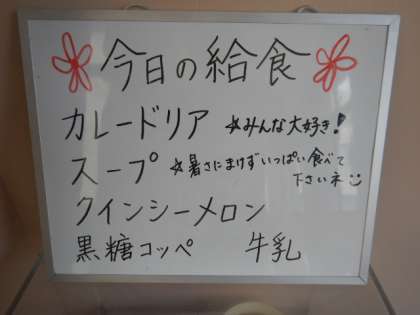 今日の給食
カレードリア ☆みんな大好き!
スープ ☆暑さにまけずいっぱい食べて
下さいネ
クインシーメロン
黒糖コッペ 牛乳